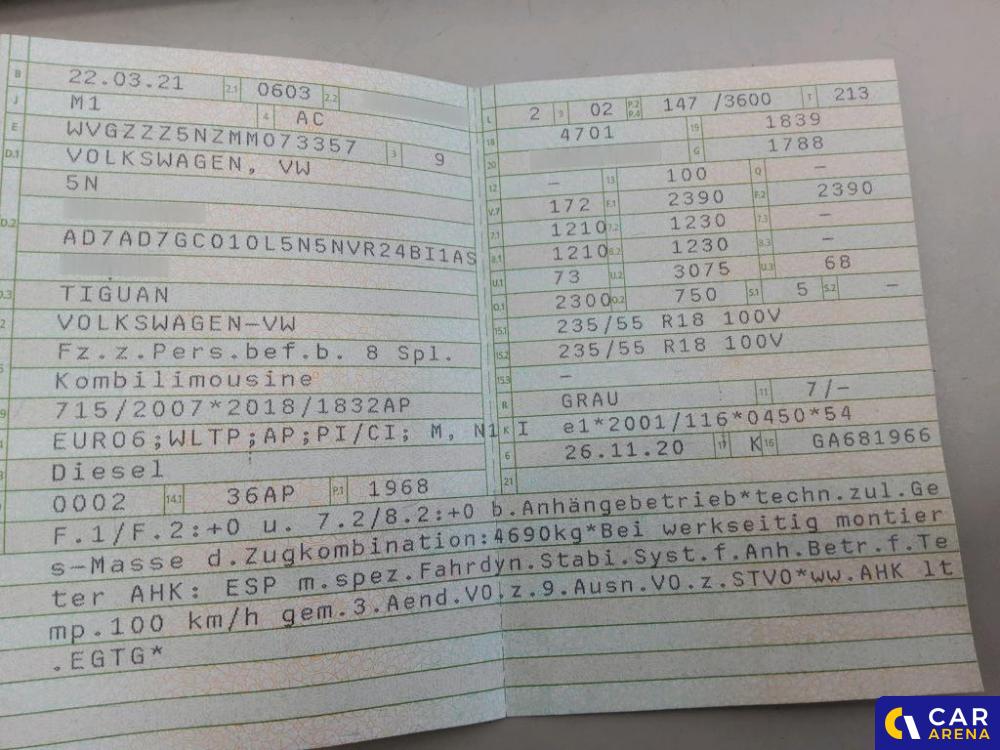 B 22.03.21 2.1 0603 2.2
J M1 4 AC
E WVGZZZ5NZMM073357 3 9
D.1 VOLKSWAGEN, VW
5N
D.2
AD7AD7GC010L5N5NVR24BI1AS
D.3 TIGUAN
2 VOLKSWAGEN-VW
5 Fz.z.Pers.bef.b. 8 Spl.
Kombilimousine
715/2007*2018/1832AP
EURO6;WLTP;AP;PI/CI; M, N1 I
Diesel
0002 14.1 36AP P.1 1968
L 2 9 02 P.2 P.4 147 /3600 T 213
18 4701 19 1839
20 G 1788
12 – 13 100 Q –
V.7 172 F.1 2390 F.2 2390
7.1 1210 7.2 1230 7.3 –
8.1 1210 8.2 1230 8.3 –
U.1 73 U.2 3075 U.3 68
O.1 2300 O.2 750 S.1 5 S.2 –
15.1 235/55 R18 100V
15.2 235/55 R18 100V
15.3 –
R GRAU 11 7/–
K e1*2001/116*0450*54
6 26.11.20 17 K 16 GA681966
21
F.1/F.2:+0 u. 7.2/8.2:+0 b.Anhängebetrieb*techn.zul.Ge
s-Masse d.Zugkombination:4690kg*Bei werkseitig montier
ter AHK: ESP m.spez.Fahrdyn.Stabi.Syst.f.Anh.Betr.f.Te
mp.100 km/h gem.3.Aend.VO.z.9.Ausn.VO.z.STVO*ww.AHK lt
.EGTG*
CAR
ARENA